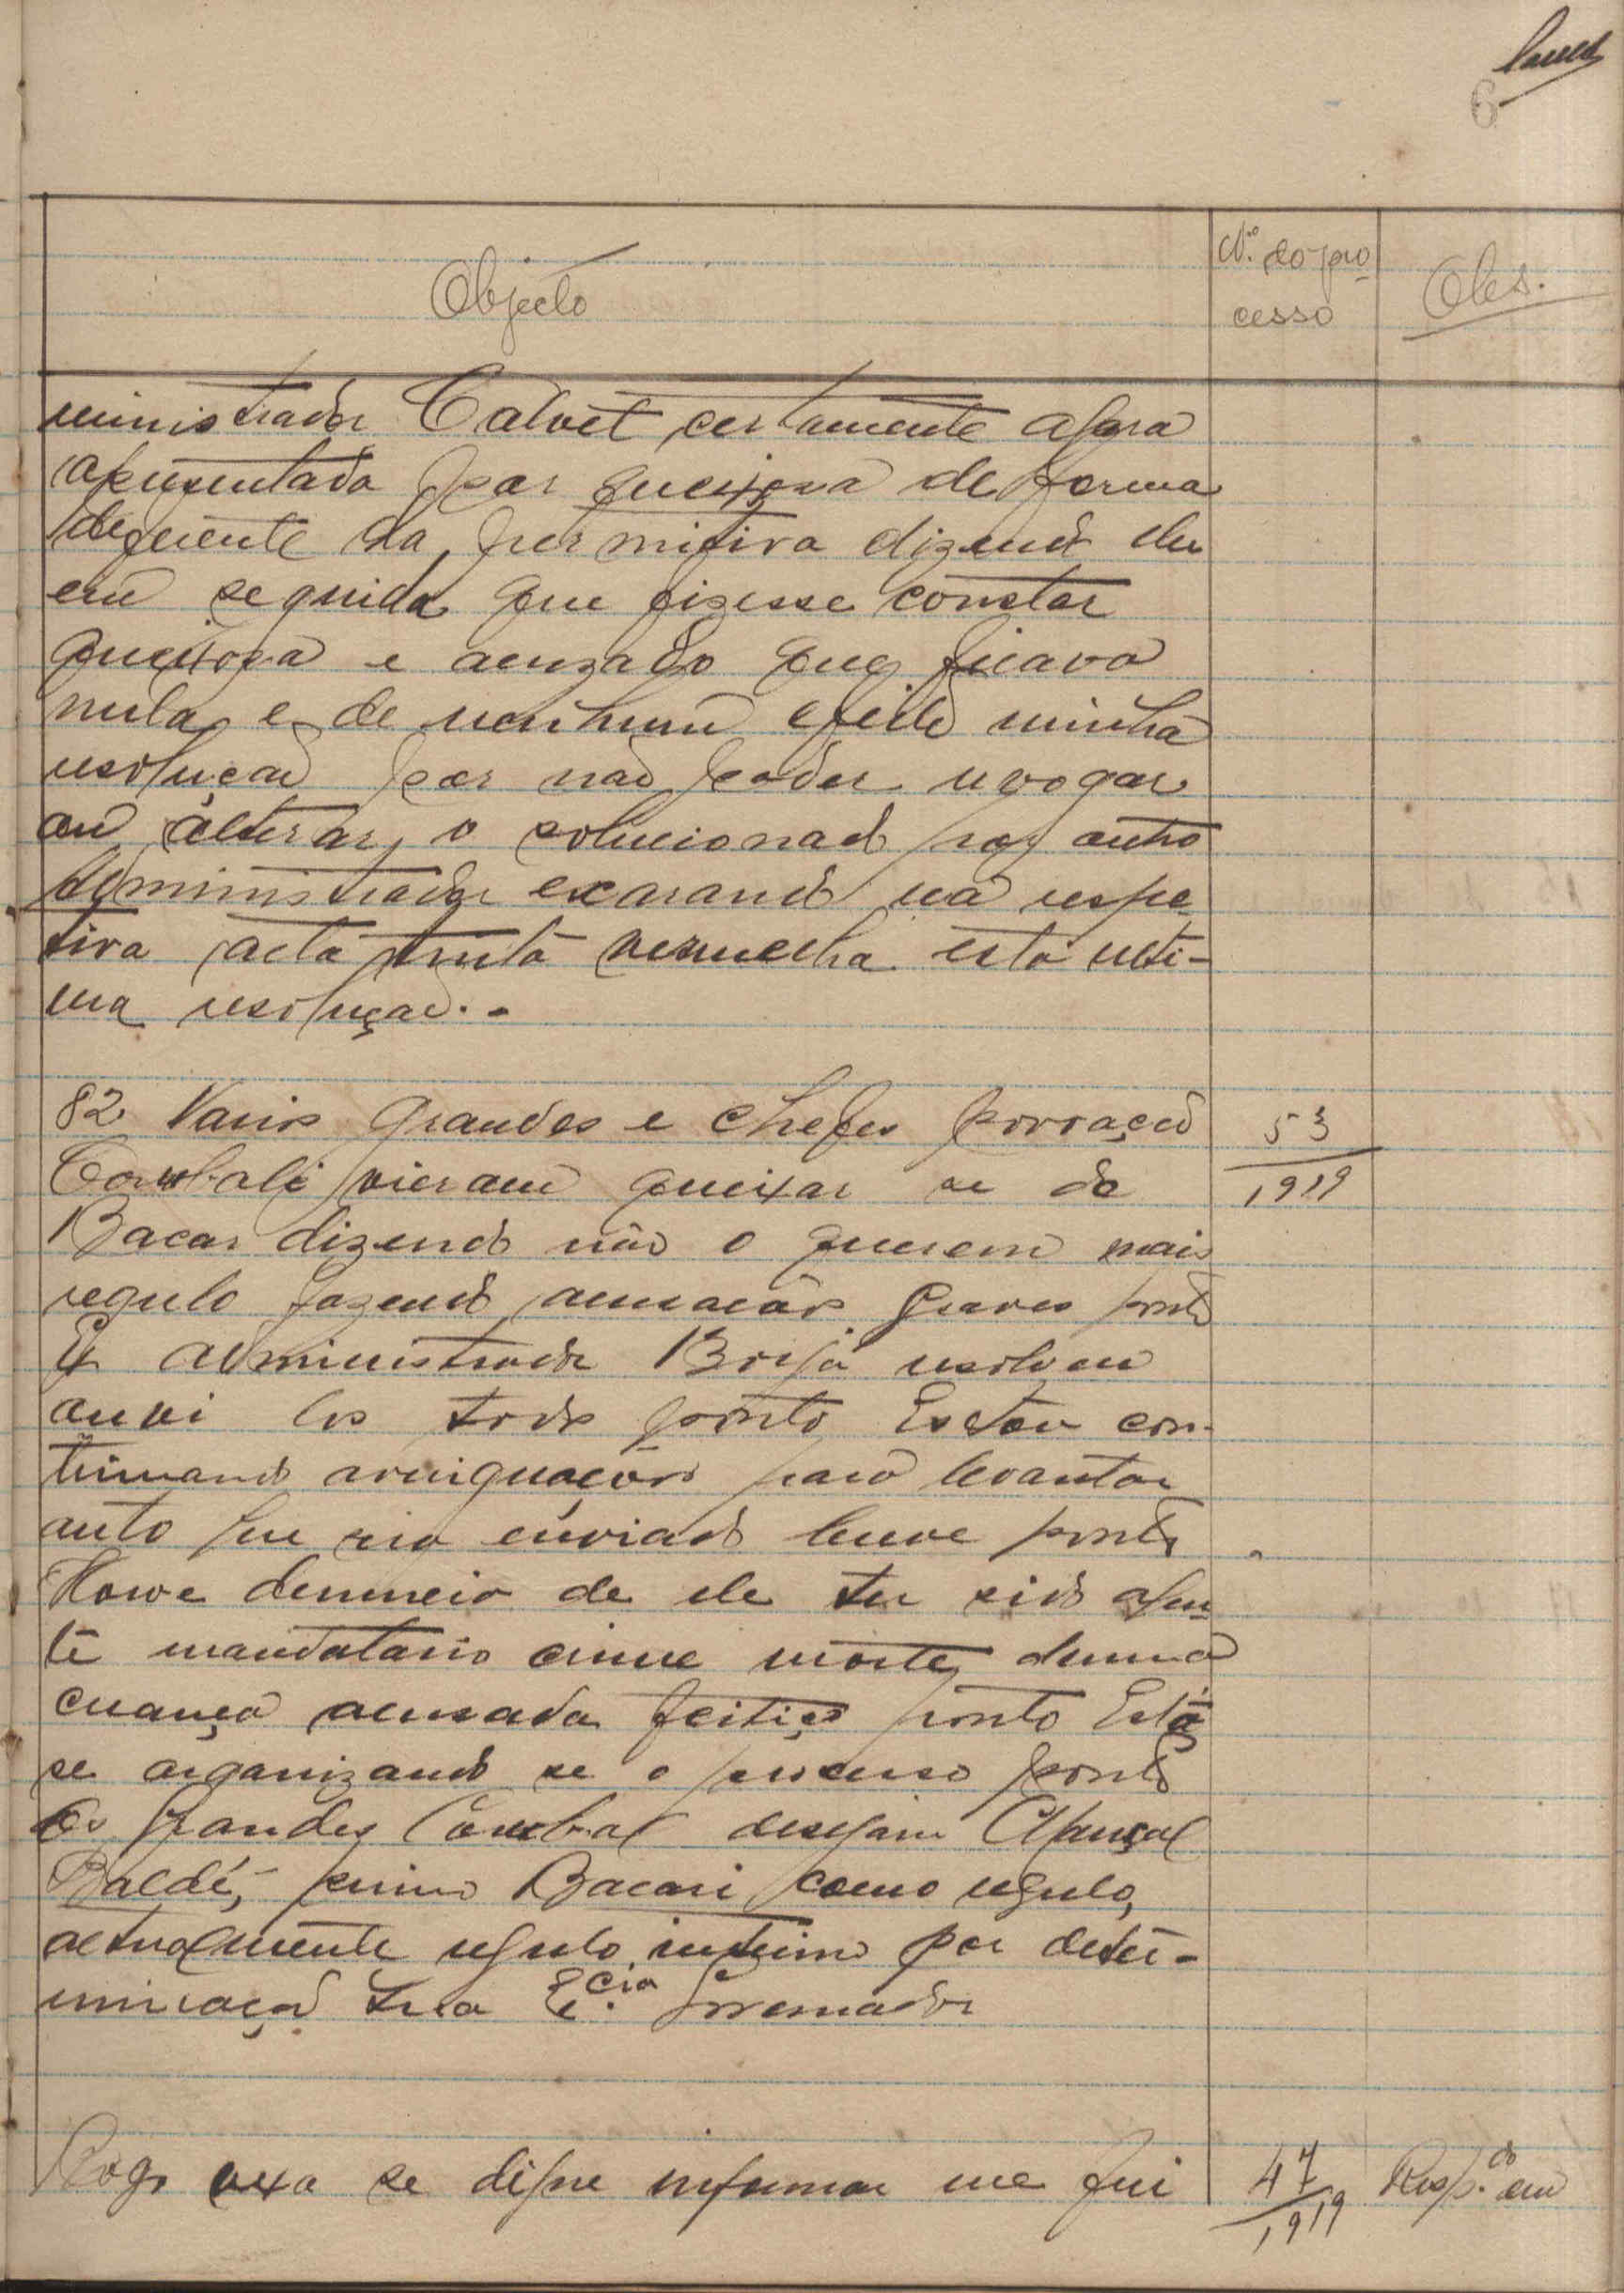 6
Objecto
N.º do pro
cesso
Obs.
ministrador Calvet certamente agora
apresentada por queixosa de forma
diferente da primitiva dizendo eu
em seguida que fizesse constar
queixosa e acuzado que ficava
nula e de nenhum efeito minha
resolução por não poder revogar
ou alterar o solucionado por outro
administrador exarando na respe-
tiva acta tinta vermelha esta ulti-
ma resolução.-
82 Varios grandes e chefes povoação
vieram queixar se de
Bacar dizendo não o querem mais
regulo fazendo acusacões graves ponto
Ex administrador Borja resolveu
ouvi los todos ponto Estou con-
tinuando averiguações para levantar
auto que será enviado breve ponto
Houve denuncia de ele ter sido agen-
te mandatario crime morte duma
creança acusada feitiço ponto Está
se organizando se o processo ponto
Os grandes desejam
Baldé, primo Bacari como regulo,
actualmente regulo interino por deter-
minação Sua E.cia Governador
53
1919
Rogo vexa se digne informar me qui
47
1919
Resp.do em